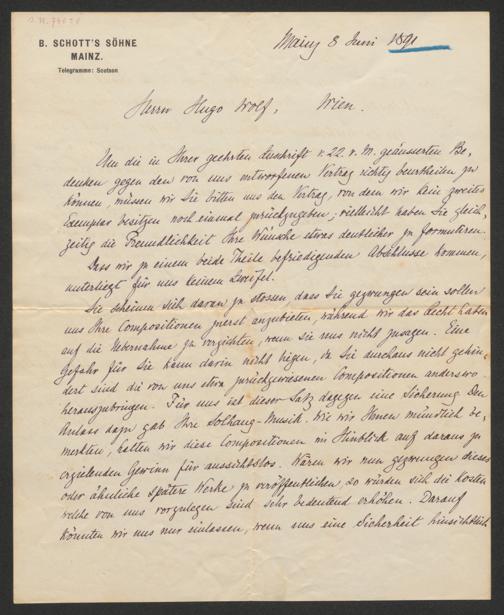 B. SCHOTT'S SÖHNE
MAINZ.
Telegramme: Scotson
Mainz 8 Juni 1891
Herrn Hugo Wolf, Wien.
Um die in Ihrer geehrten Zuschrift v. 22. v. M. geäusserten Be-
denken gegen den von uns entworfenen Vertrag richtig beurtheilen zu
können, müssen wir Sie bitten uns den Vertrag, von dem wir kein zweites
Exemplar besitzen noch einmal zurückzugeben; vielleicht haben Sie gleich-
zeitig die Freundlichkeit Ihre Wünsche etwas deutlicher zu formuliren.
Dass wir zu einem beide Theile befriedigenden Abschlusse kommen,
unterliegt für uns keinem Zweifel.
Sie scheinen sich daran zu stossen dass Sie gezwungen sein sollen
uns Ihre Compositionen zuerst anzubieten, während wir das Recht haben
auf die Uebernahme zu verzichten, wenn sie uns nicht zusagen. Eine
Gefahr für Sie kann darin nicht liegen, da Sie durchaus nicht gehin-
dert sind die von uns etwa zurückgewiesenen Compositionen anderswo
herauszubringen. Für uns ist dieser Satz dagegen eine Sicherung. Den
Anlass dazu gab Ihre Solhaug-Musik. Wie wir Ihnen mündlich be-
merkten, halten wir diese Compositionen im Hinblick auf daraus zu
erzielenden Gewinn für aussichtslos. Wären wir nun gezwungen dieses
oder ähnliche spätere Werke zu veröffentlichen, so würden sich die Kosten
welche von uns vorzulegen sind sehr bedeutend erhöhen. Darauf
könnten wir uns nur einlassen, wenn uns eine Sicherheit hinsichtlich